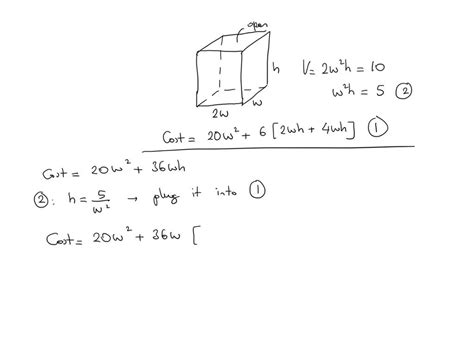 open
h
V = 2w²h = 10
w²h = 5 ②
w
2w
Cost = 20w² + 6 [2wh + 4wh] ①
Cost = 20w² + 36wh
②: h = 5/w² → plug it into ①
Cost = 20w² + 36w [